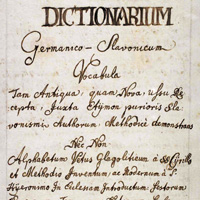 DICTIONARIUM
Germanico-Slavonicum
Vocabula
Tam Antiqua, quam Nova, usu Re-
cepta, juxta Etymon purioris Sla-
vonismi Authorum Methodicè demonstrans
Nec Non
Alphabetum Vetus Glagoliticum à SS Cyrillo
et Methodio Inventum, ac Modernum à S.
Hieronimo In Eclesiam Introductum;